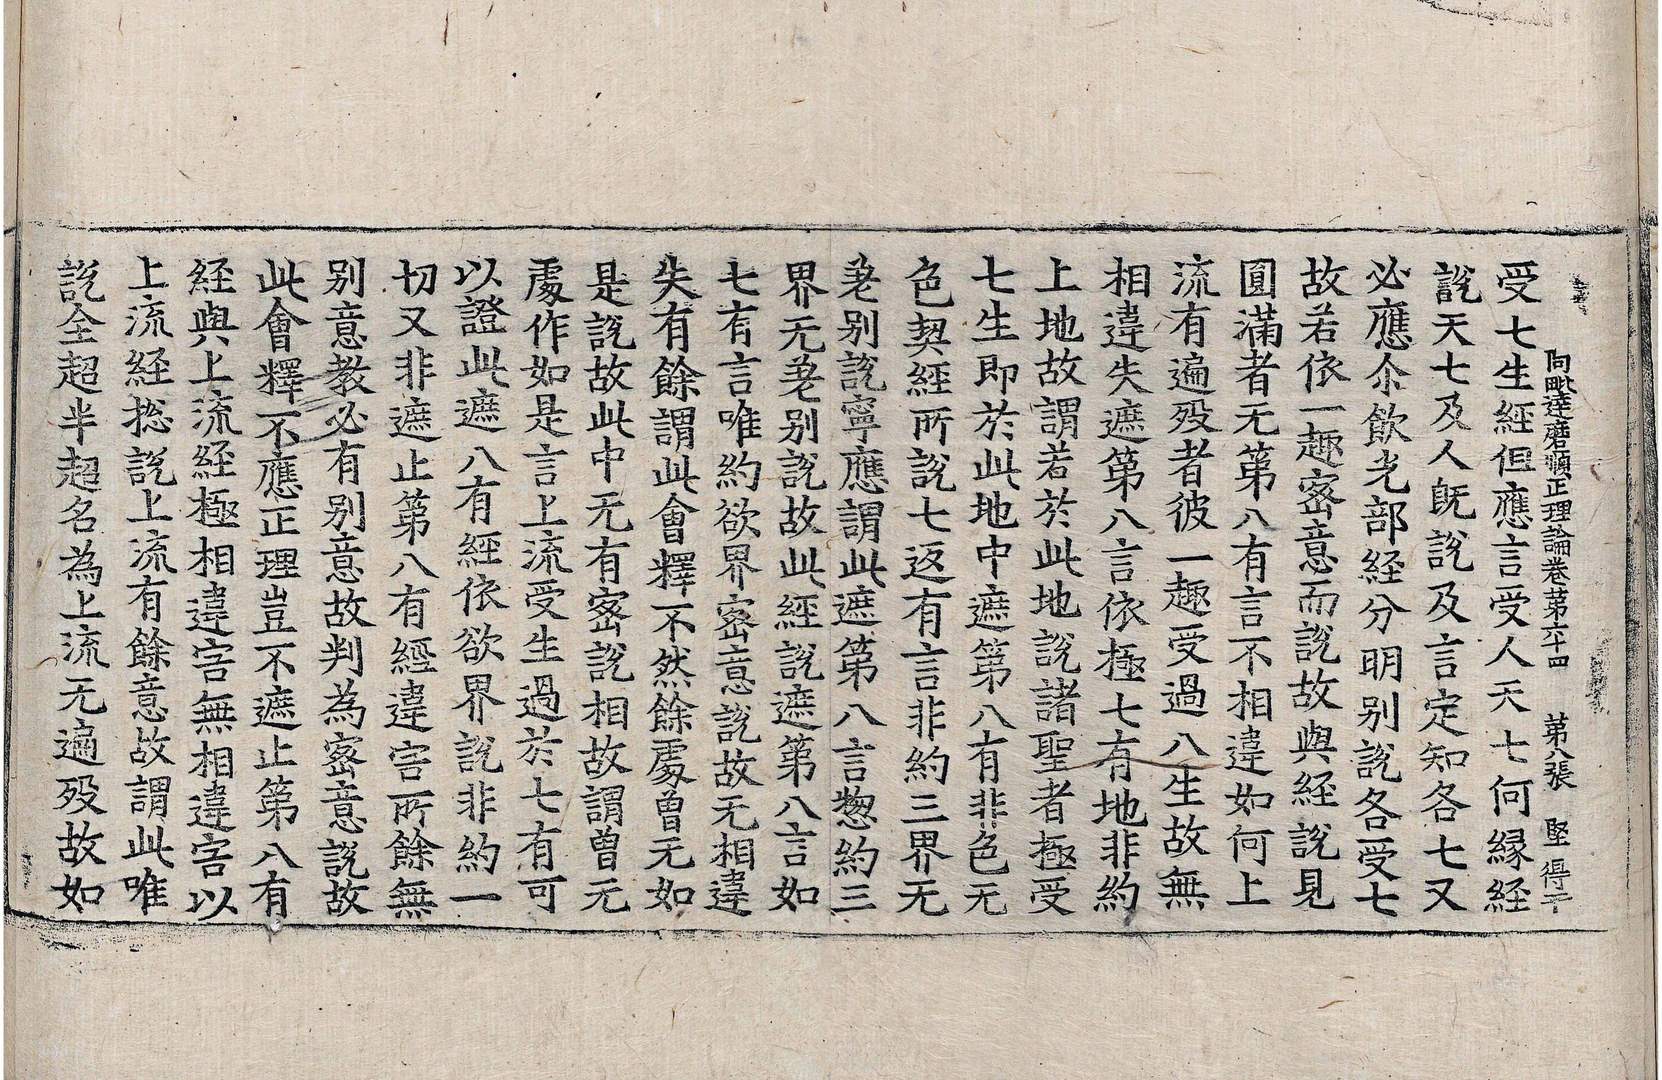 阿毗達磨順正理論卷第六十四 第八張 堅 得
受七生經但應言受人天七何緣經
說天七及人既說及言定知各七又
必應尒飲光部經分明別說各受七
故若依一趣密意而說故與經說見
圓滿者无第八有言不相違如何上
流有遍歿者彼一趣受過八生故無
相違失遮第八言依極七有地非約
上地故謂若於此地說諸聖者極受
七生即於此地中遮第八有非色无
色契經所說七返有言非約三界无
差別說寧應謂此遮第八言惣約三
界无差別說故此經說遮第八言如
七有言唯約欲界密意說故无相違
失有餘謂此會釋不然餘處曾无如
是說故此中无有密說相故謂曾无
處作如是言上流受生過於七有可
以證此遮八有經依欲界說非約一
切又非遮止第八有經違害所餘無
別意教必有別意故判為密意說故
此會釋不應正理豈不遮止第八有
經與上流經極相違害無相違害以
上流經捴說上流有餘意故謂此唯
說全超半超名為上流无遍歿故如